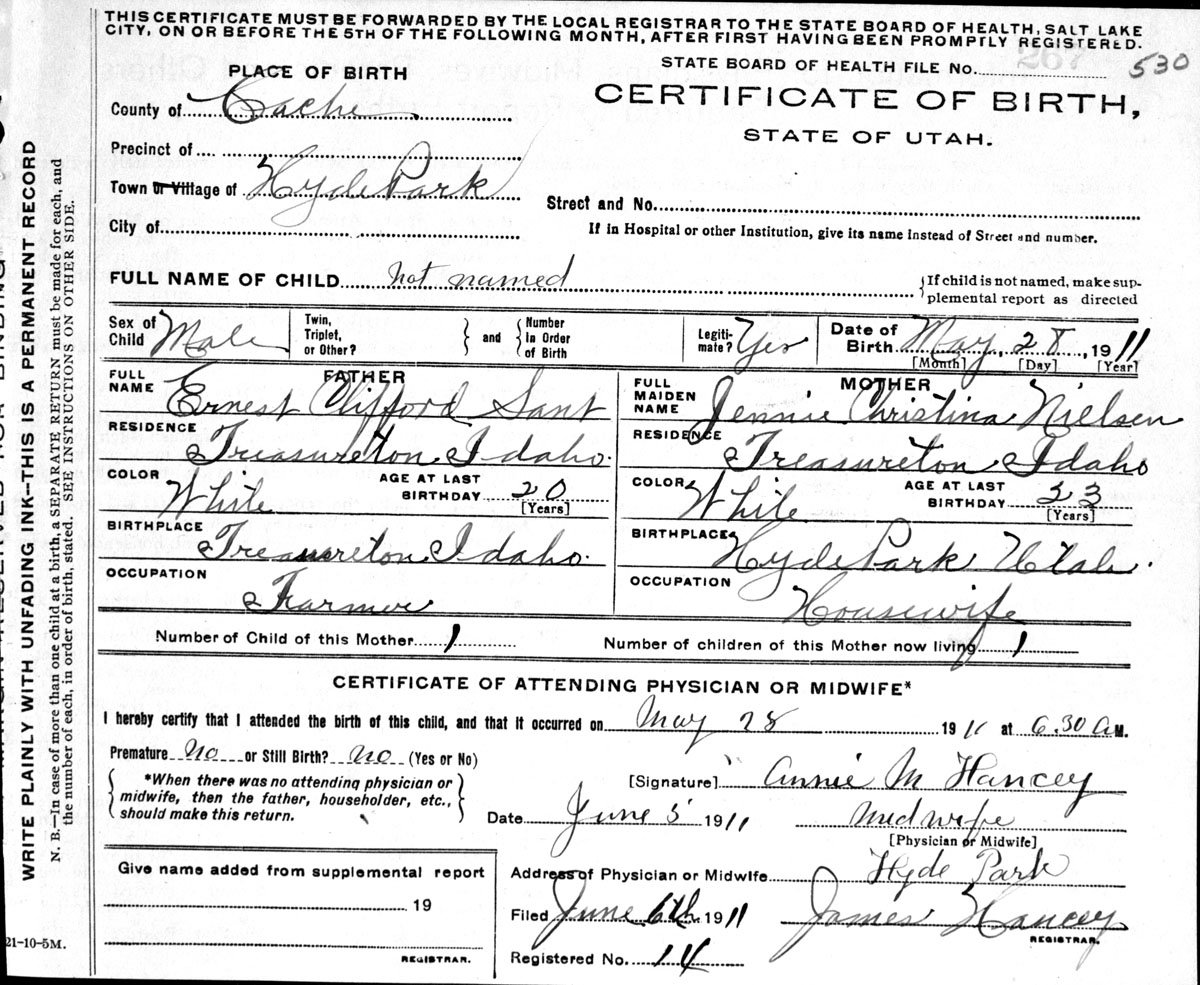 THIS CERTIFICATE MUST BE FORWARDED BY THE LOCAL REGISTRAR TO THE STATE BOARD OF HEALTH, SALT LAKE
CITY, ON OR BEFORE THE 5TH OF THE FOLLOWING MONTH, AFTER FIRST HAVING BEEN PROMPTLY REGISTERED.
PLACE OF BIRTH
STATE BOARD OF HEALTH FILE No. 267 530
County of Cache
CERTIFICATE OF BIRTH,
STATE OF UTAH.
Precinct of
Town or Village of Hyde Park
Street and No.
City of
If in Hospital or other Institution, give its name instead of Street and number.
FULL NAME OF CHILD not named
{If child is not named, make sup-
plemental report as directed
Sex of
Child Male
Twin,
Triplet,
or Other?
} and {
Number
In Order
of Birth
Legiti-
mate? Yes
Date of
Birth May, 28, 1911
[Month] [Day] [Year]
FULL
NAME
FATHER
Ernest Clifford Sant
RESIDENCE
Treasureton Idaho.
COLOR
White
AGE AT LAST
BIRTHDAY 20
[Years]
BIRTHPLACE
Treasureton Idaho.
OCCUPATION
Farmer
FULL
MAIDEN
NAME
MOTHER
Jennie Christina Nielsen
RESIDENCE
Treasureton Idaho
COLOR
White
AGE AT LAST
BIRTHDAY 23
[Years]
BIRTHPLACE
Hyde Park Utah.
OCCUPATION
Housewife
Number of Child of this Mother 1
Number of children of this Mother now living 1
CERTIFICATE OF ATTENDING PHYSICIAN OR MIDWIFE*
I hereby certify that I attended the birth of this child, and that it occurred on May 28 1911 at 6.30 A.M.
Premature No or Still Birth? No (Yes or No)
{*When there was no attending physician or
midwife, then the father, householder, etc.,
should make this return.}
[Signature] Annie M Hancey
Date June 5 1911
Midwife
[Physician or Midwife]
Give name added from supplemental report
19
REGISTRAR.
Address of Physician or Midwife Hyde Park
Filed June 6th 1911
James Hancey
REGISTRAR.
Registered No. 14
21-10-5M.
WRITE PLAINLY WITH UNFADING INK—THIS IS A PERMANENT RECORD
N. B.—In case of more than one child at a birth, a SEPARATE RETURN must be made for each, and
the number of each, in order of birth, stated. SEE INSTRUCTIONS ON OTHER SIDE.